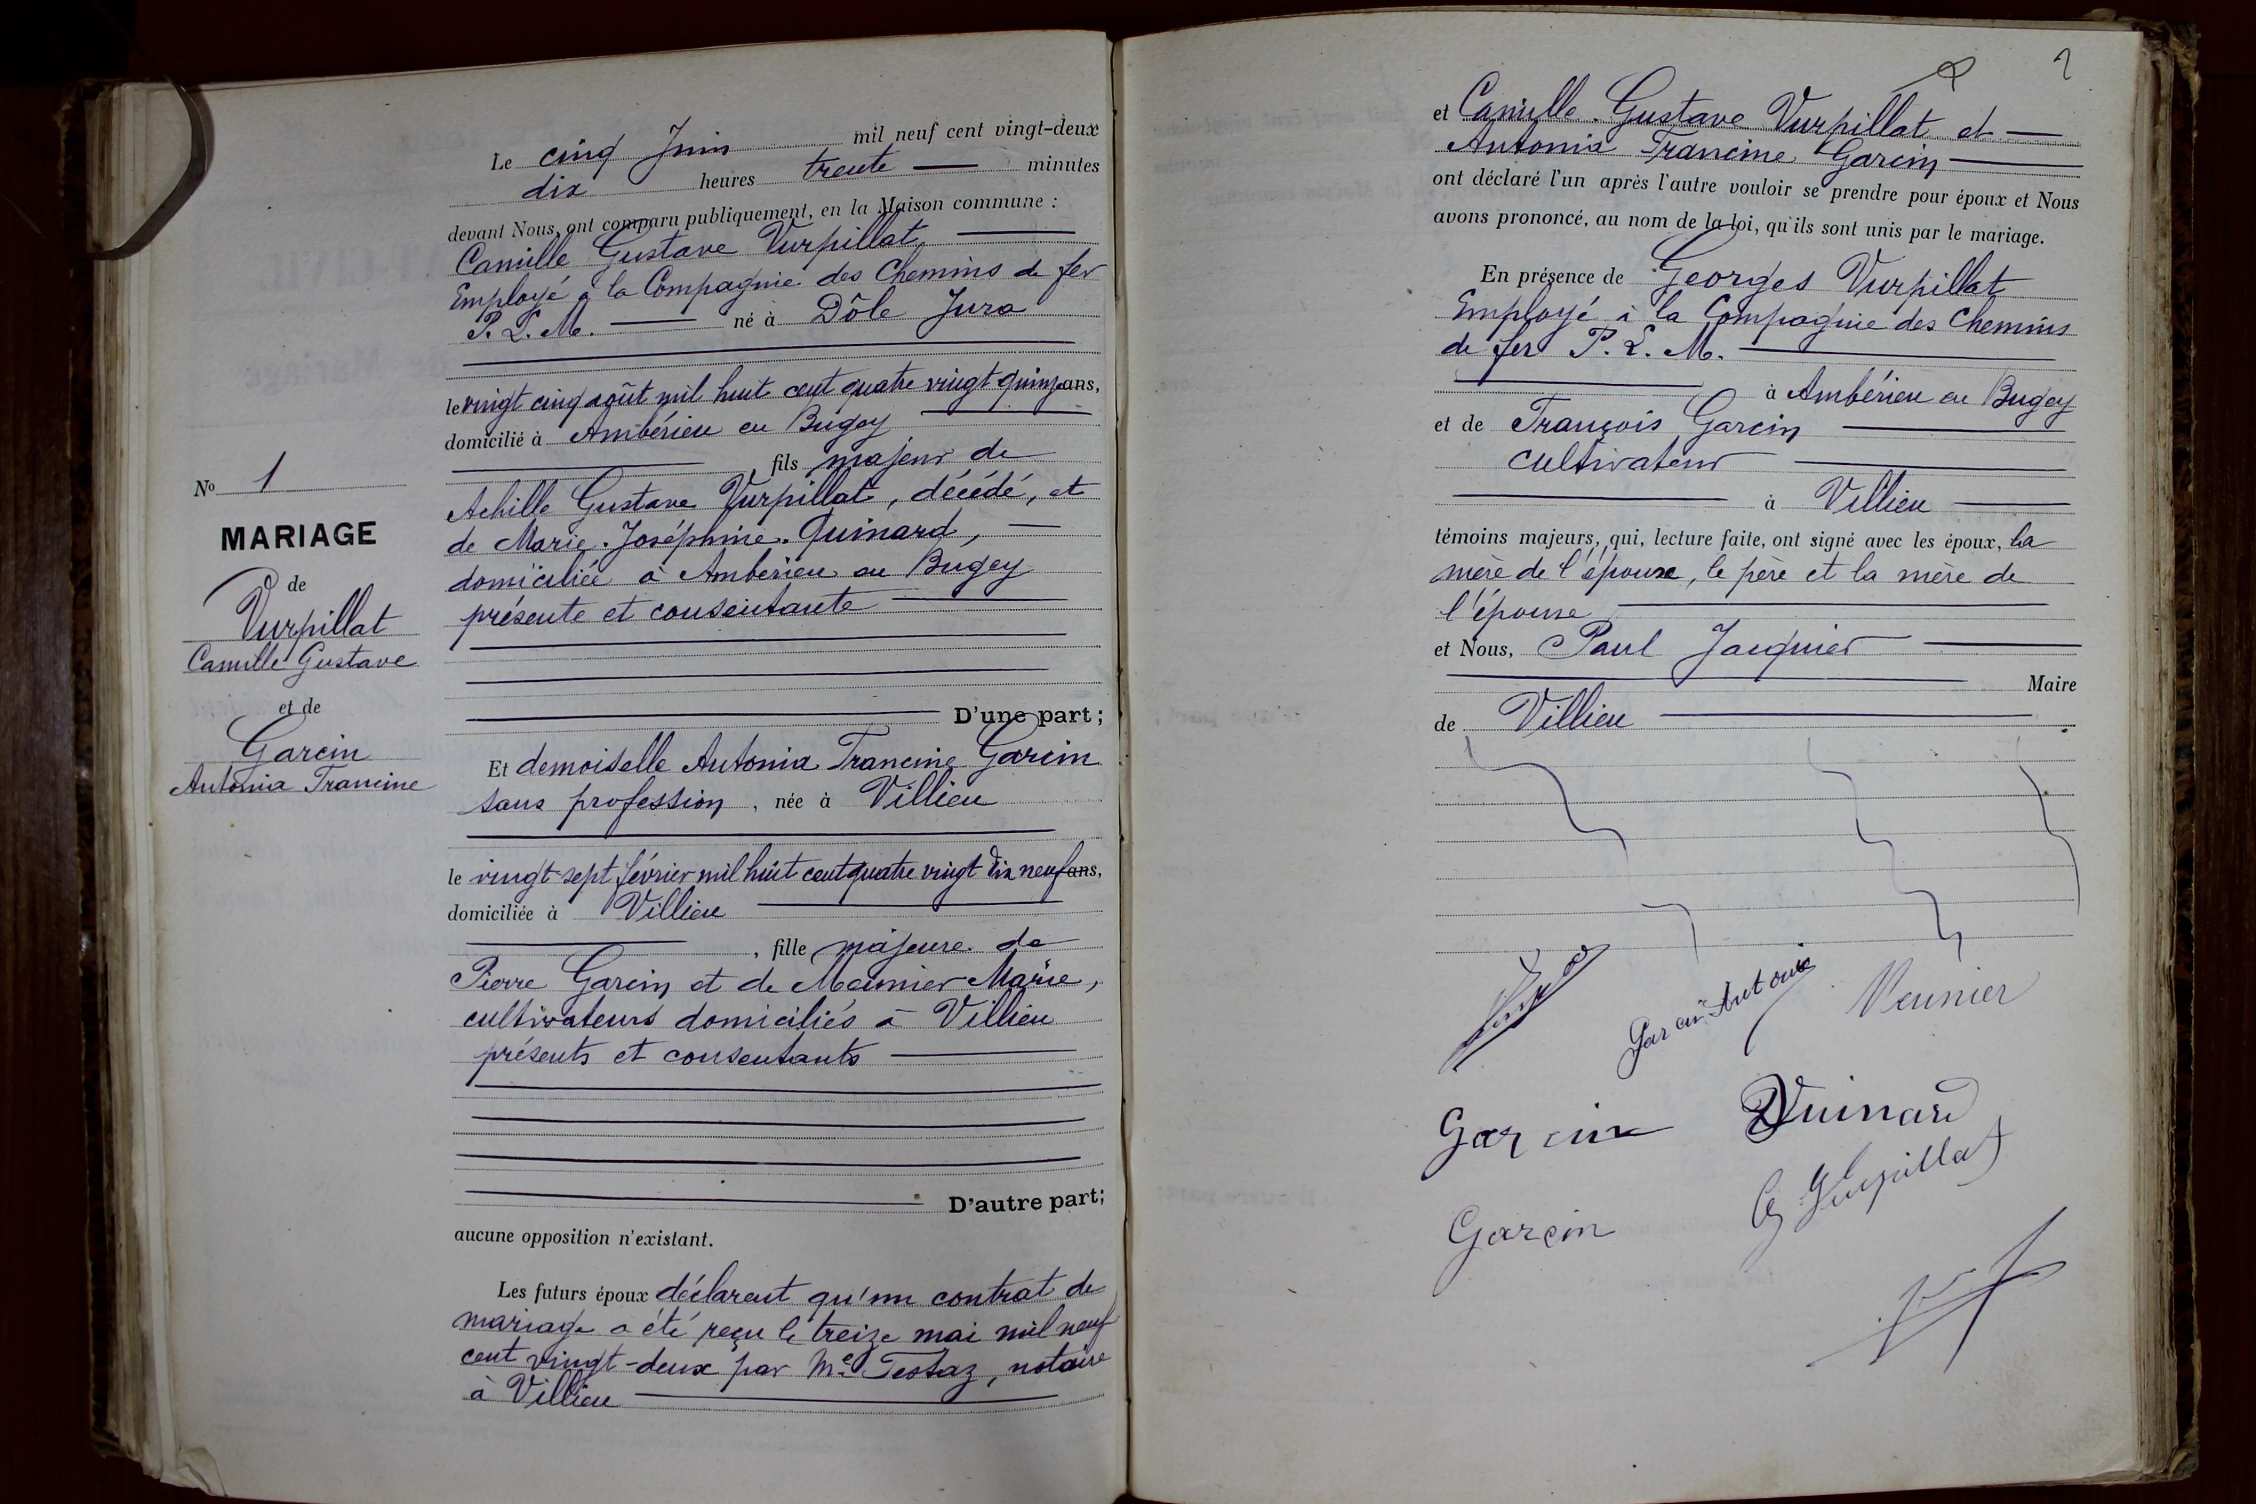 Le cinq Juin mil neuf cent vingt-deux
dix heures trente minutes
devant Nous, ont comparu publiquement, en la Maison commune :
Camille Gustave Vurpillat
Employé à la Compagnie des Chemins de fer
P. L. M. né à Dôle Jura
le vingt cinq août mil huit cent quatre vingt quinze ans,
domicilié à Ambérieu en Bugey
, fils majeur de
Achille Gustave Vurpillat, décédé, et
de Marie Joséphine Quinard,
domiciliée à Ambérieu en Bugey
présente et consentante
D'une part ;
No 1
MARIAGE
de
Vurpillat
Camille Gustave
et de
Garcin
Antonia Francine
Et demoiselle Antonia Francine Garcin
sans profession, née à Villieu
le vingt-sept février mil huit cent quatre vingt dix neuf ans,
domiciliée à Villieu
, fille majeure de
Pierre Garcin et de Meunier Marie,
cultivateurs domiciliés à Villieu
présents et consentants
D'autre part ;
aucune opposition n'existant.
Les futurs époux déclarent qu'un contrat de
mariage a été reçu le treize mai mil neuf
cent vingt-deux par Me Testaz, notaire
à Villieu
2
et Camille Gustave Vurpillat et
Antonia Francine Garcin
ont déclaré l'un après l'autre vouloir se prendre pour époux et Nous
avons prononcé, au nom de la loi, qu'ils sont unis par le mariage.
En présence de Georges Vurpillat
Employé à la Compagnie des Chemins
de fer P. L. M.
à Ambérieu en Bugey
et de François Garcin
cultivateur
à Villieu
témoins majeurs, qui, lecture faite, ont signé avec les époux, la
mère de l'épouse, le père et la mère de
l'épouse
et Nous, Paul Jacquier
Maire
de Villieu
Garcin Antonia
Meunier
Garcin
Quinard
Garcin
G Vurpillat